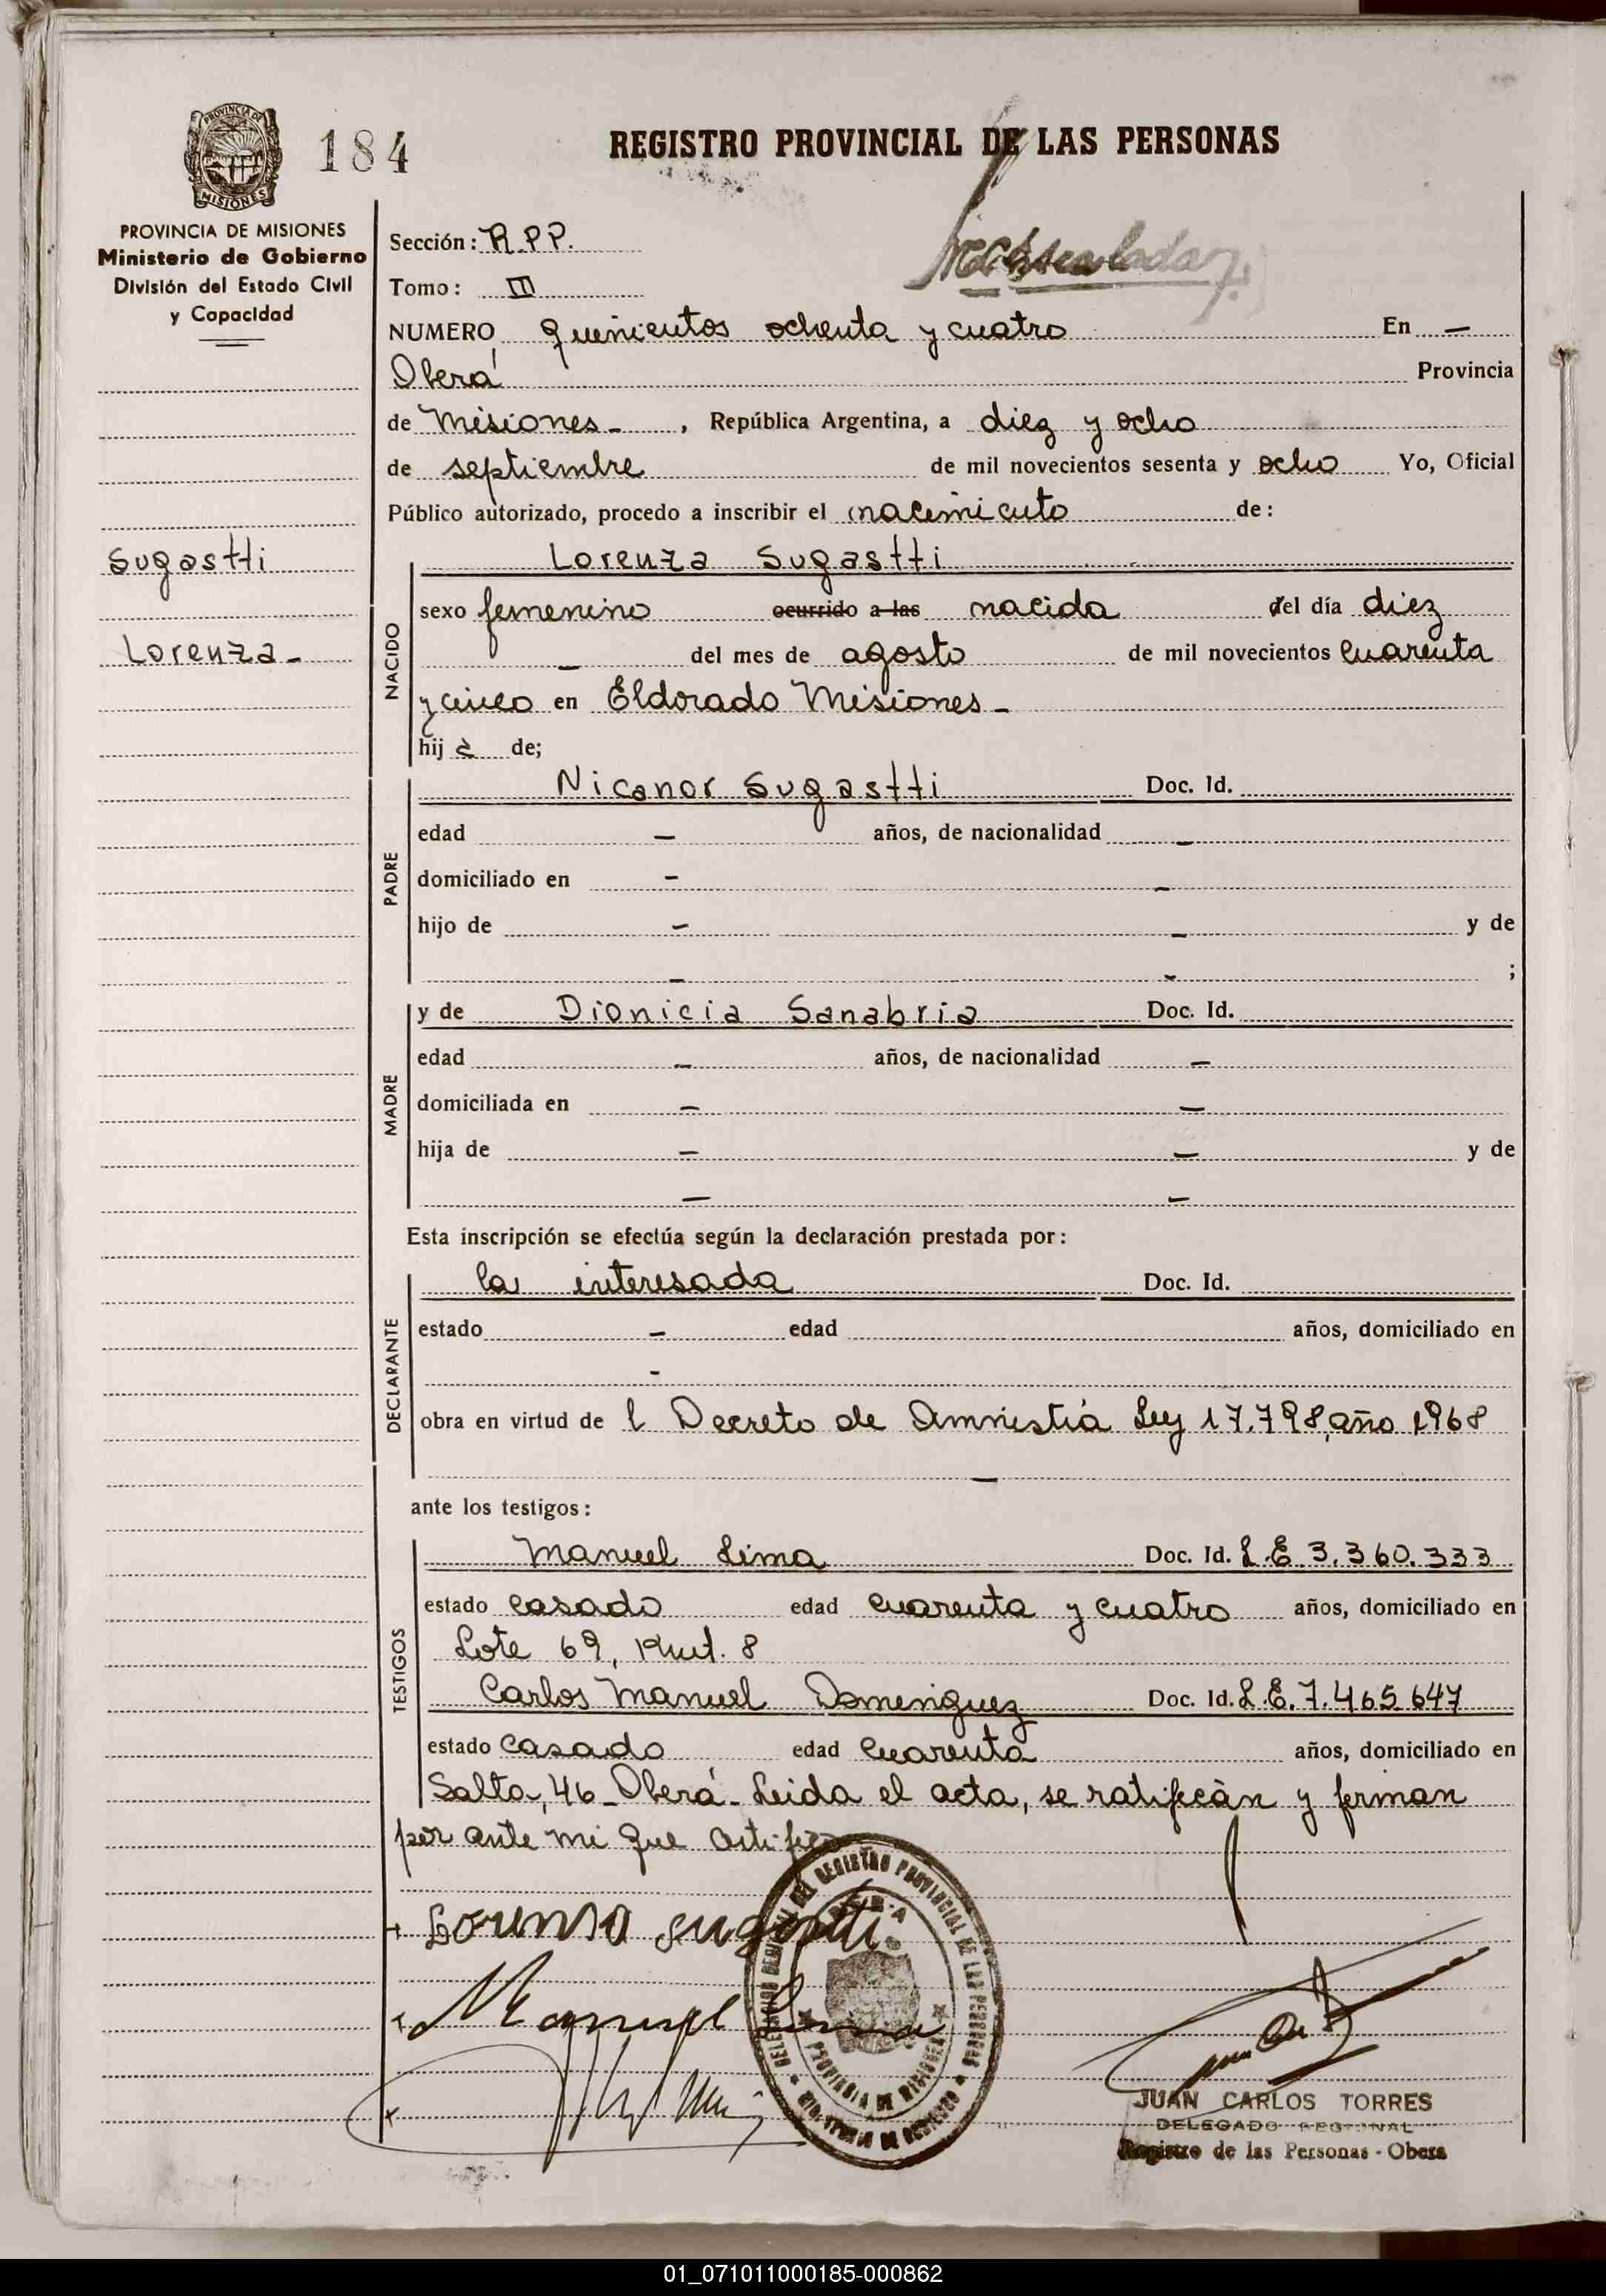 184
REGISTRO PROVINCIAL DE LAS PERSONAS
PROVINCIA DE
MISIONES
PROVINCIA DE MISIONES
Ministerio de Gobierno
División del Estado Civil
y Capacidad
Sección: R.P.P.
Tomo: III
NUMERO quinientos ochenta y cuatro En —
Oberá Provincia
de Misiones - , República Argentina, a diez y ocho
de septiembre de mil novecientos sesenta y ocho Yo, Oficial
Público autorizado, procedo a inscribir el nacimiento de:
Sugastti
Lorenza -
NACIDO
Lorenza Sugastti
sexo femenino ocurrido a las nacida del día diez
— del mes de agosto de mil novecientos cuarenta
y cinco en Eldorado Misiones -
hij a de;
PADRE
Nicanor Sugastti Doc. Id.
edad — años, de nacionalidad —
domiciliado en — —
hijo de — — y de
— — ;
MADRE
y de Dionicia Sanabria Doc. Id.
edad — años, de nacionalidad —
domiciliada en — —
hija de — — y de
— —
Esta inscripción se efectúa según la declaración prestada por:
DECLARANTE
la interesada Doc. Id.
estado — edad años, domiciliado en
-
obra en virtud de l Decreto de Amnistía Ley 17.798, año 1968
—
ante los testigos:
TESTIGOS
Manuel Lima Doc. Id. L.E 3.360.333
estado casado edad cuarenta y cuatro años, domiciliado en
Lote 69, Kmt. 8
Carlos Manuel Domenguez Doc. Id. L.E. 7.465.647
estado casado edad cuarenta años, domiciliado en
Salta, 46 - Oberá - Leida el acta, se ratificàn y firman
por ante mi que certifico
Lorenza Sugastti
Manuel Lima
DEL REGISTRO PROVINCIAL DE LAS PERSONAS
PROVINCIA DE MISIONES
JUAN CARLOS TORRES
DELEGADO REGIONAL
Registro de las Personas - Obera
01_071011000185-000862